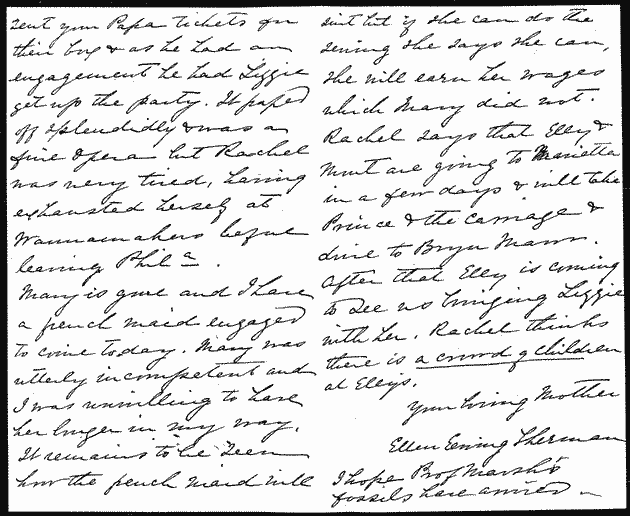 sent your Papa tickets for
their box & as he had an
engagement he had Lizzie
get up the party. It passed
off splendidly & was a
fine Opera but Rachel
was very tired, having
exhausted herself at
Wannamakers before
leaving Phila.
Mary is gone and I have
a french maid engaged
to come today. Mary was
utterly incompetent and
I was unwilling to have
her longer in my way.
It remains to be seen
how the french maid will
suit but if she can do the
sewing she says she can,
she will earn her wages
which Mary did not.
Rachel says that Elly &
are going to Marietta
in a few days & will take
Prince & the carriage &
drive to Bryn Mawr.
After that Elly is coming
to see us bringing Lizzie
with her. Rachel thinks
there is a crowd of children
at Ellys.
Your loving Mother
Ellen Ewing Sherman
I hope Prof Marsh's
fossils have arrived